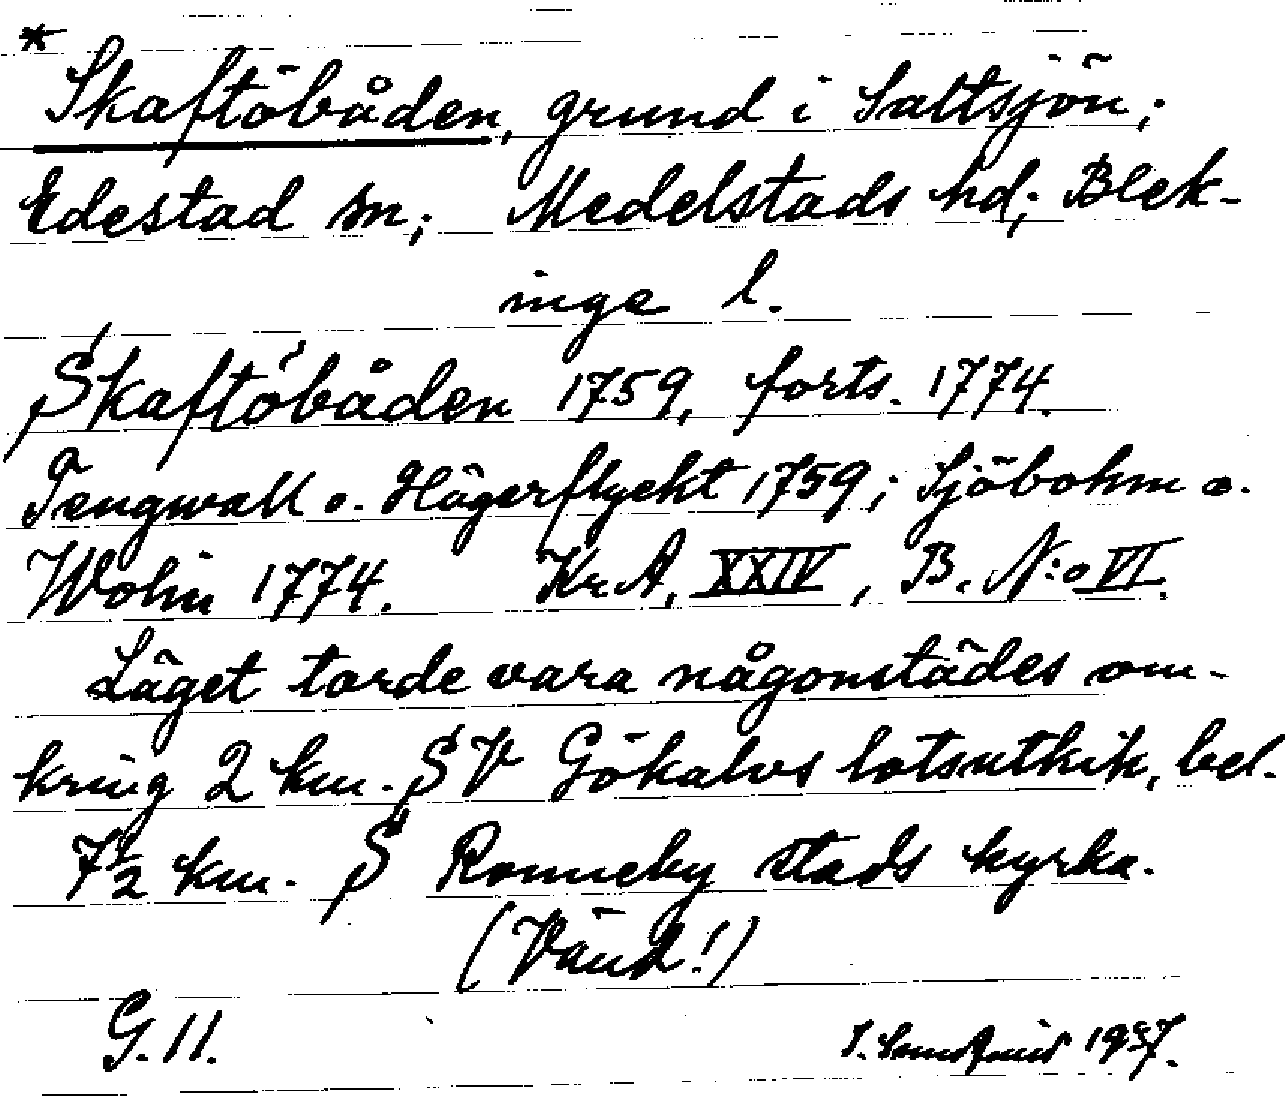 * Skaftöbåden, grund i Saltsjön;
Edestad sn; Medelstads hd; Blek-
inge l.
Skaftöbåden 1759, forts. 1774.
Tengwall o. Hägerflycht 1759; Sjöbohm o.
Wohn 1774. Kr. A. XXIV, B. N:o VI.
Läget torde vara någonstädes om-
kring 2 km. SV Gökalvs lotsutkik, bel.
7½ km. S Ronneby stads kyrka.
(Vänd!)
G. 11.
J. Sandquist 1937.